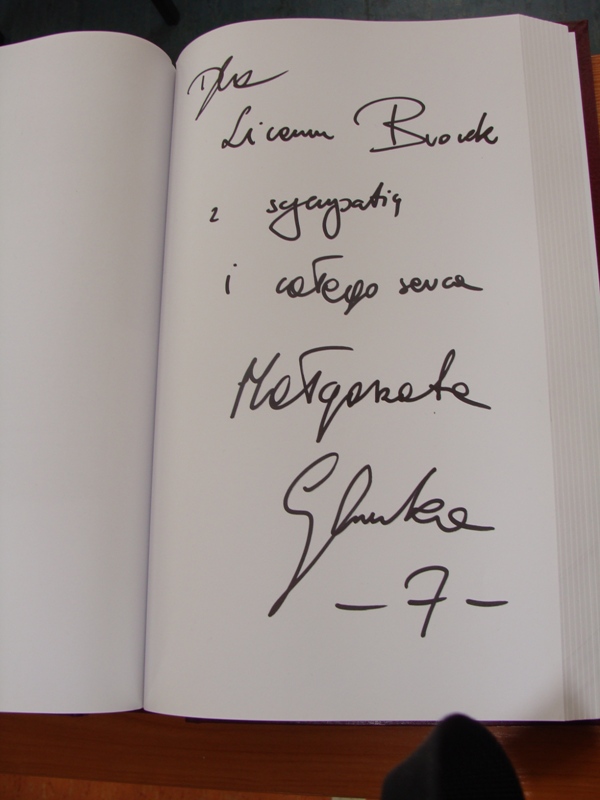 Dla
Liceum Brodek
z sympatią
i całego serca
Małgorzata
Glinka
- 7 -